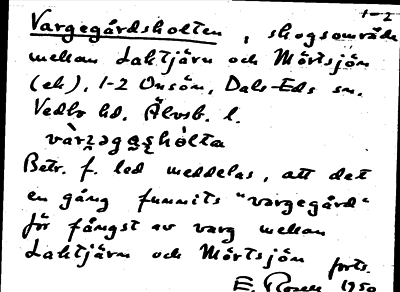 1-2
Vargegårdsholten, skogsområde
mellan Laktjärn och Mörtsjön
(ek), 1-2 Onsön, Dals-Eds sn.
Vedbo hd. Älvsb. l.
Betr. f. led meddelas, att det
en gång funnits "vargegård"
för fångst av varg mellan
Laktjärn och Mörtsjön
forts.
E. 1950